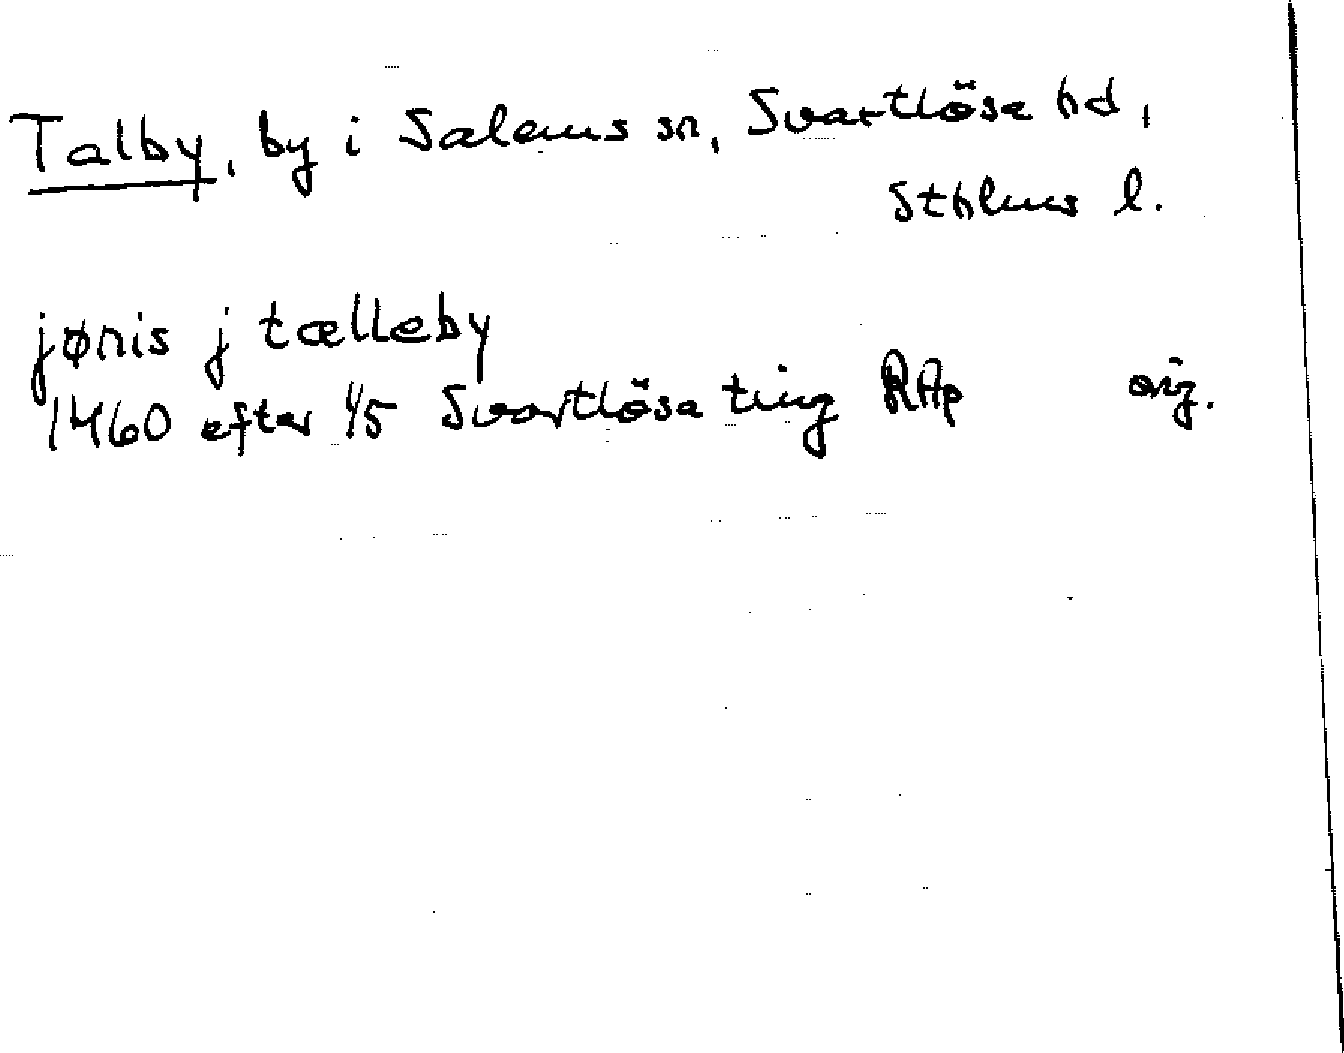 Talby, by i Salems sn, Svartlösa hd,
Sthlms l.
jønis j tælleby
1460 efter 1/5 Svartlösa ting RAp orig.